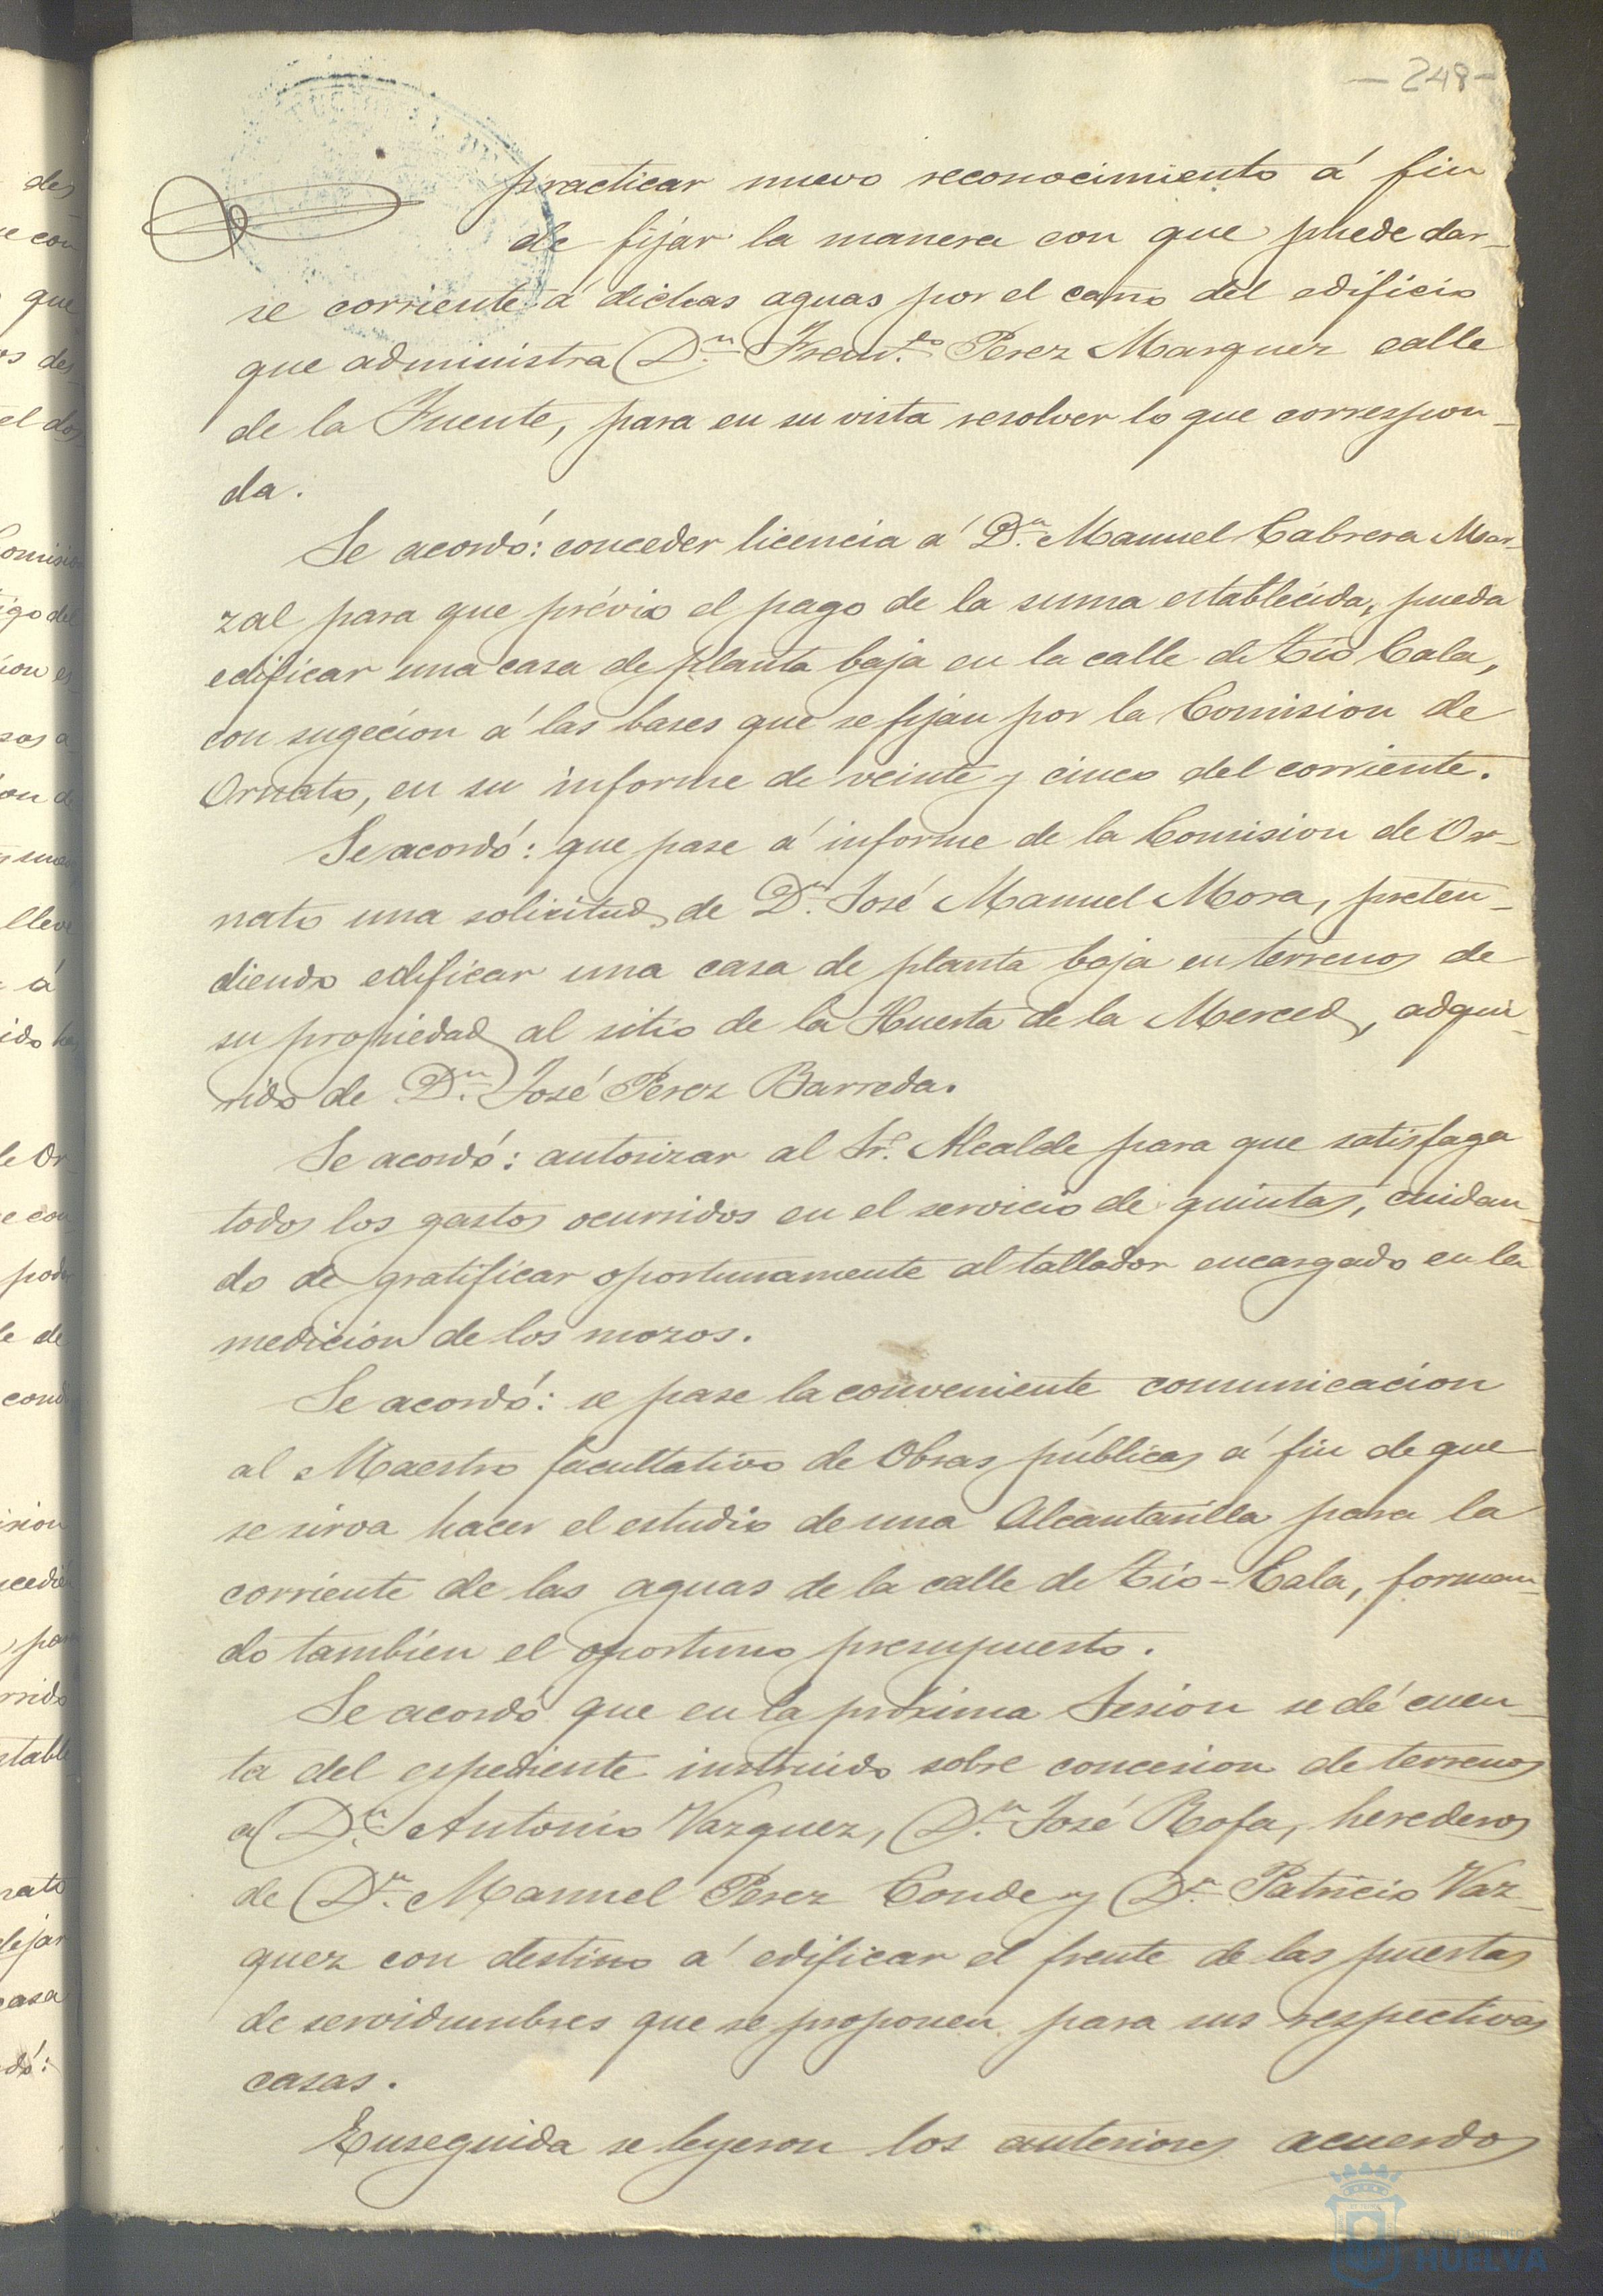 — 248 —
practicar nuevo reconocimiento á fin
de fijar la manera con que puede dar-
se corriente á dichas aguas por el caño del edificio
que administra Dn. Franco. Perez Marquez calle
de la Fuente, para en su vista resolver lo que correspon-
da.
Se acordó: conceder licencia á Dn. Manuel Cabrera Mar-
zal para que prévio el pago de la suma establecida, pueda
edificar una casa de planta baja en la calle de Tio Cala,
con sugecion á las bases que se fijan por la Comision de
Ornato, en su informe de veinte y cinco del corriente.
Se acordó: que pase á informe de la Comision de Or-
nato una solicitud de Dn. José Manuel Mora, preten-
diendo edificar una casa de planta baja en terrenos de
su propiedad al sitio de la Huerta de la Merced, adqui-
rido de Dn. José Perez Barreda.
Se acordó: autorizar al Sr. Alcalde para que satisfaga
todos los gastos ocurridos en el servicio de quintas, cuidan-
do de gratificar oportunamente al tallador encargado en la
medición de los mozos.
Se acordó: se pase la conveniente comunicación
al Maestro facultativo de Obras públicas á fin de que
se sirva hacer el estudio de una Alcantarilla para la
corriente de las aguas de la calle de Tio-Cala, forman-
do tambien el oportuno presupuesto.
Se acordó que en la próxima Sesion se dé cuen-
ta del espediente instruido sobre concesion de terrenos
a Dn. Antonio Vazquez, Dn. José Rofa, herederos
de Dn. Manuel Perez Conde y Dn. Patricio Vaz-
quez con destino á edificar el frente de las puertas
de servidumbres que se proponen para sus respectivas
casas.
Enseguida se leyeron los anteriores acuerdos
HUELVA